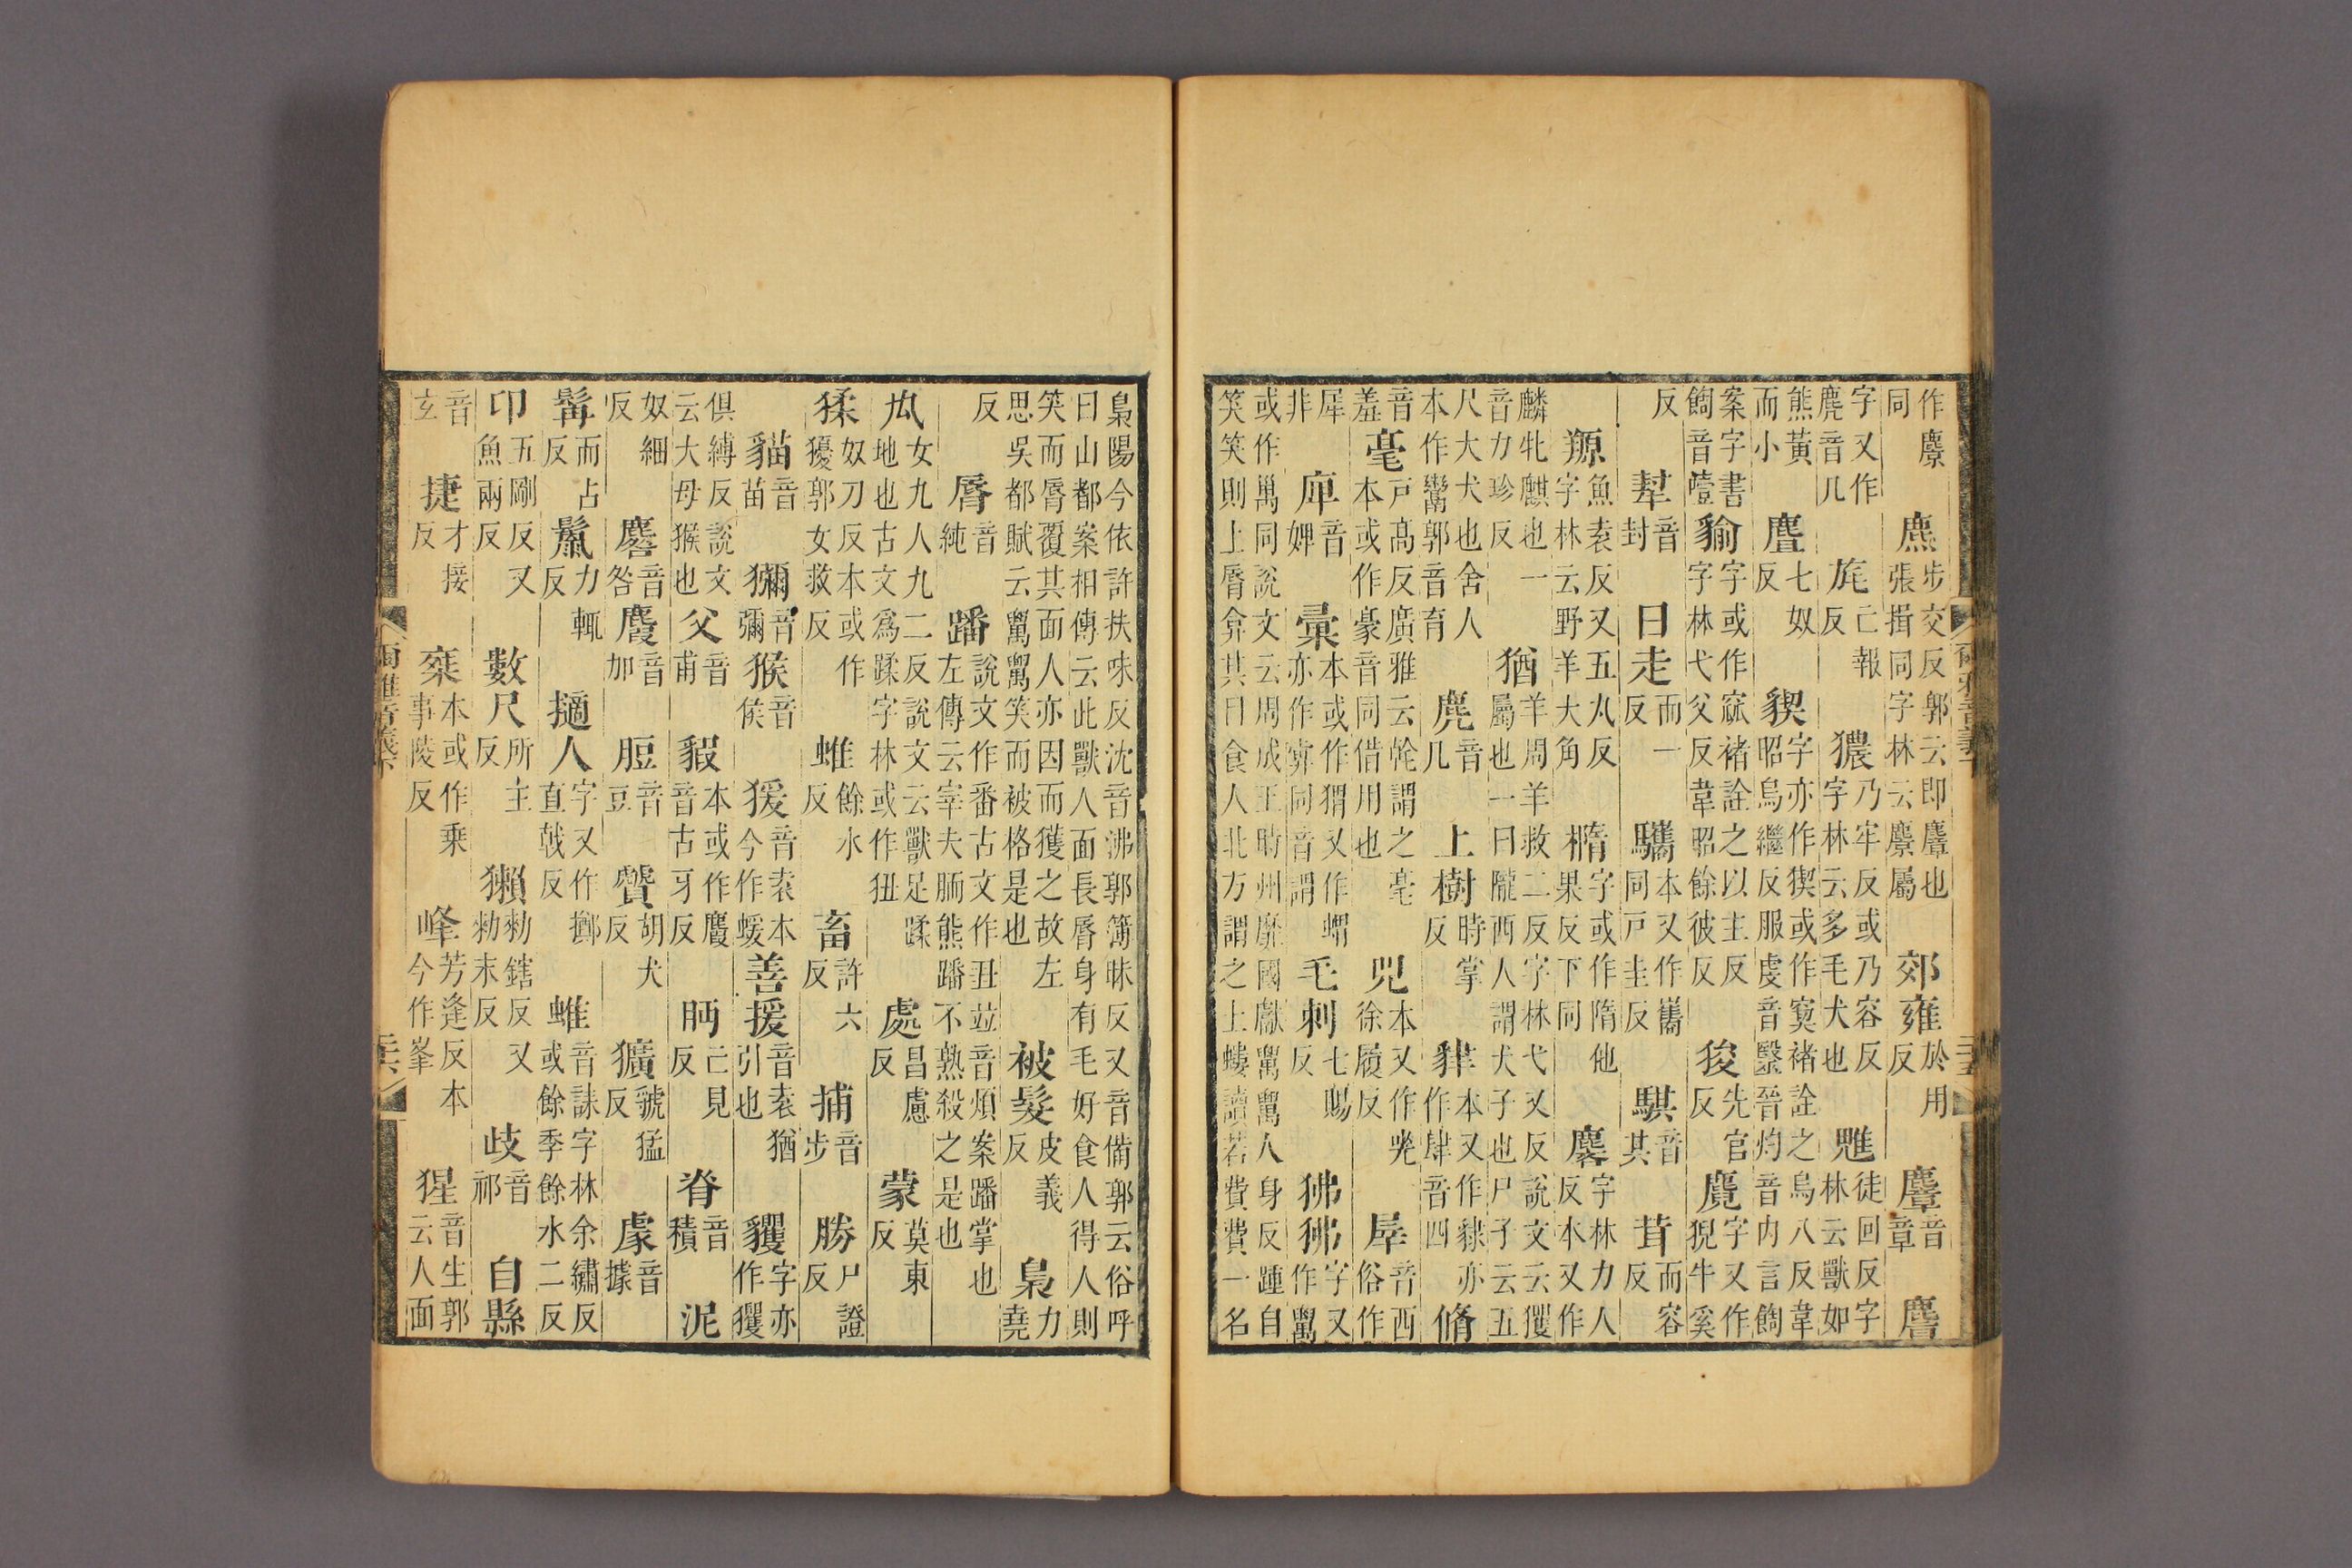 作麖同麃步交反郭云即麞也張揖同字林云麖屬郊雍於用反麞音章
字又作麂音几旄亡報反乃牢反或乃容反字林云多毛犬也魋徒回反字林云獸如
熊黃而小麆七奴反字亦作猰或作窫褚詮之烏八反韋昭烏繼反服虔音毉晉灼音內言餇
案字書餇音噎貐字或作窳褚詮之以主反字林弋父反韋昭餘彼反狻先官反麑字又作猊牛奚
反犎音封日走而一反驨本又作巂同戶圭反騏音其茸而容反
羱魚袁反又五丸反字林云野羊大角橢字或作隋他果反下同麐字林力人反本又作
麟牝麒也一音力珍反猶羊周羊救二反字林弋又反說文云玃屬也一曰隴西人謂犬子也尸子云五
尺大犬也舍人本作鸒郭音育麂音几上樹時掌反貄本又作亦作肆音四脩
音羞毫戶高反廣雅云謂之毫本或作豪音同借用也兕本又作徐履反犀音西俗作
犀非庳音婢彙本或作猬又作蝟亦作同音謂毛刺七賜反狒狒字又作
或作同說文云周成王時州靡國獻人身反踵自笑笑則上脣弇其目食人北方謂之土螻讀若費費一名
梟陽今依許扶味反沈音沸郭簿昧反又音備郭云俗呼曰山都案相傳云此獸人面長脣身有毛好食人得人則
笑而脣覆其面人亦因而獲之故左思吳都賦云笑而被格是也被髮皮義反梟力堯
反脣音純蹯說文作番古文作丑並音煩案蹯掌也左傳云宰夫胹熊蹯不熟殺之是也
厹女九人九二反說文云獸足蹂地也古文爲蹂字林或作狃處昌慮反蒙莫東反
猱奴刀反本或作獶郭女救反蜼餘水反畜許六反捕音步勝尸證反
貓音苗獼音彌猴音侯猨音袁本今作蝯善援音袁猶引也貜字亦作玃
俱縛反說文云大母猴也父音甫貑本或作麚音古牙反眄亡見反脊音積泥
奴細反麔音咎麚音加脰音豆贙胡犬反獷號猛反豦音據
髯而占反鬣力輒反擿人字又作擲直戟反蜼音誄字林余繡反或餘季餘水二反
卬五剛反又魚兩反數尺所主反獺勑鎋反又勑末反歧音祁自縣
音玄捷才接反椉本或作乘事陵反峰芳逢反本今作峯猩音生郭云人面